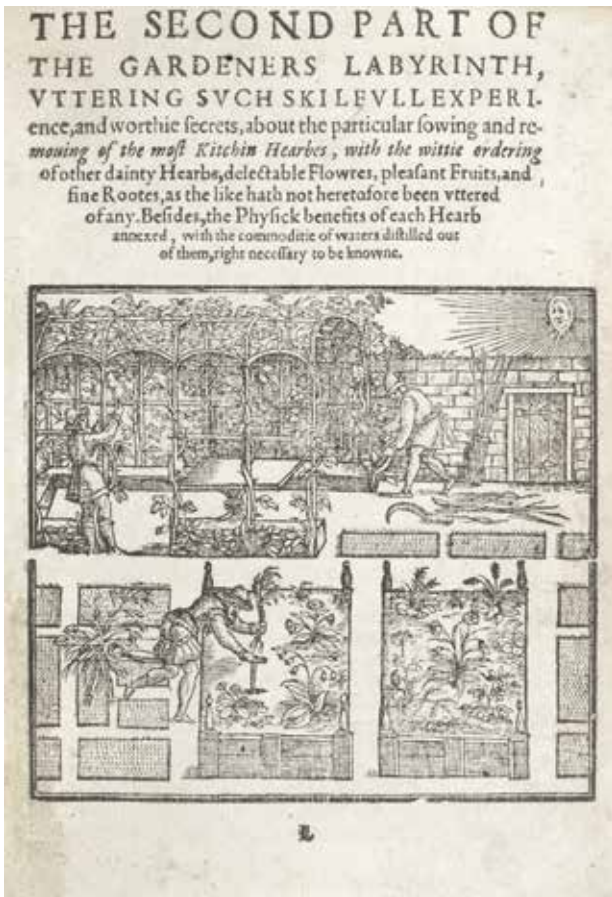 THE SECOND PART OF
THE GARDENERS LABYRINTH,
VTTERING SVCH SKILFVLL EXPERI-
ence, and worthie ſecrets, about the particular ſowing and re-
mouing of the moſt Kitchin Hearbes, with the wittie ordering
of other dainty Hearbs, delectable Flowres, pleaſant Fruits, and
fine Rootes, as the like hath not heretofore been vttered
of any. Beſides, the Phyſick benefits of each Hearb
annexed, with the commoditie of waters diſtilled out
of them, right neceſſary to be knowne.
L